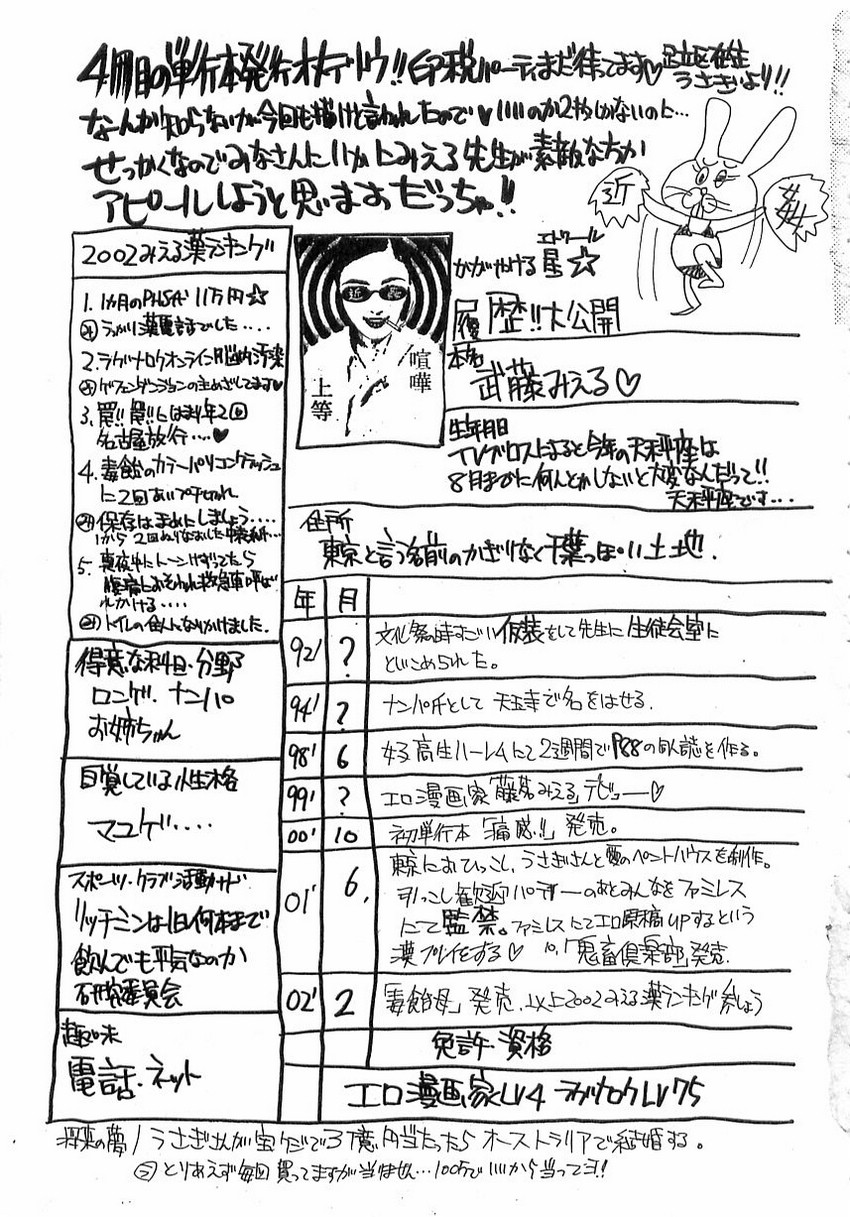 4冊目の単行本発行オメデトウ!! 印税パーティまだ待ってます♡ 足立区在住
うさぎより!!
なーんか知らないが今回も描けと言われたので♥いいのか2枚しかないのに…
せっかくなのでみなさんにいかにみえる先生が素敵な方か
アピールしようと思いますだっちゃ!!
近
2002みえる漢ランキング
1. 1カ月のPHS代 11万円☆
うっかり漢電話でした....
2. ラグナロクオンライン脳内汚染
ゲフェンダンジョンの主めざしてます♥
3. 罠!! 罠!!にはまり年2回
名古屋旅行....♥
4. 毒飴のカラーパソコンクラッシュ
に2回あいブチきれ
保存はまめにしましょう....
1から2回ぬりなおした
5. 真夜中にトーンけずってたら
腹痛におそわれ救急車呼ば
れかける....
トイレの住人なりかけました.
得意な科目・分野
ロンゲ. ナンパ
お姉ちゃん
自覚している性格
マユゲ....
スポーツ・クラブ活動など
リッチミンは1日何本まで
飲んでも平気なのか
研究委員会
趣味
電話・ネット
喧嘩
上等
かがやける星☆
エトワール
履歴!!大公開
本名
武藤みえる♡
生年月日
TVブロスによると今年の天秤座は
8月までに何んとかしないと大変なんだって!!
天秤座です...
住所
東京と言う名前のかぎりなく千葉っぽい土地.
年 月
92' ? 文化祭の時すごい仮装をして先生に生徒会室に
とじこめられた。
94' ? ナンパ氏として天王寺で名をはせる.
98' 6 女子高生ハーレムにて2週間でP88の同人誌を作る。
99' ? エロ漫画家「みえる」デビュー♡
00' 10 初単行本「痛感!!」発売。
01' 6. 東京におひっこし, うさぎさんと愛のペントハウスを制作。
引っこし歓迎パーティーのあとみんなをファミレス
にて監禁。ファミレスにてエロ原稿upするという
漢プレイをする♡ 10.「鬼畜倶楽部」発売.
02' 2 「毒飴母」発売. 以上2002みえる漢ランキング参しょう
免許・資格
エロ漫画家LV4 ラグナロクLV75
将来の夢/うさぎさんが宝クジで3億円当たったらオーストラリアで結婚する。
とりあえず毎回買ってますが当りません…100万でいいから当ってヨ!!